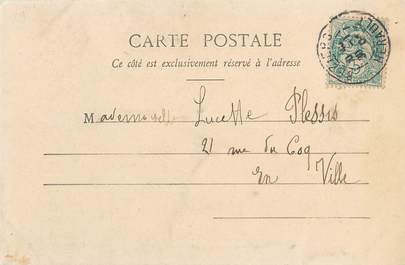 CARTE POSTALE
Ce côté est exclusivement réservé à l'adresse
Mademoiselle Lucette Plessis
21 rue du Coq
En Ville